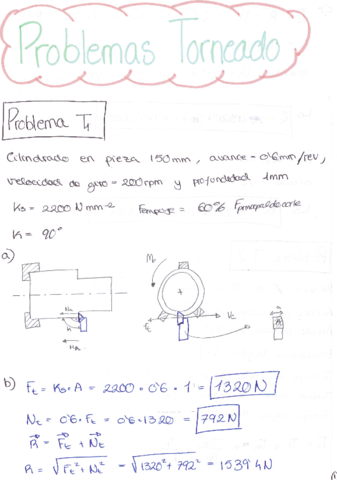 Problemas Torneado
Problema T1
Cilindrado en pieza 150mm, avance = 0'6mm/rev,
velocidad de giro = 200rpm y profundidad 1mm
Ks = 2200 N mm-2 Fempuje = 60% Fprincipal de corte
K = 90°
a)
b) Ft = Ks · A = 2200 · 0'6 · 1 = 1320 N
Nt = 0'6 · Ft = 0'6 · 1320 = 792 N
R = Ft + Nt
R = √Ft² + Nt² = √1320² + 792² = 1539'4N